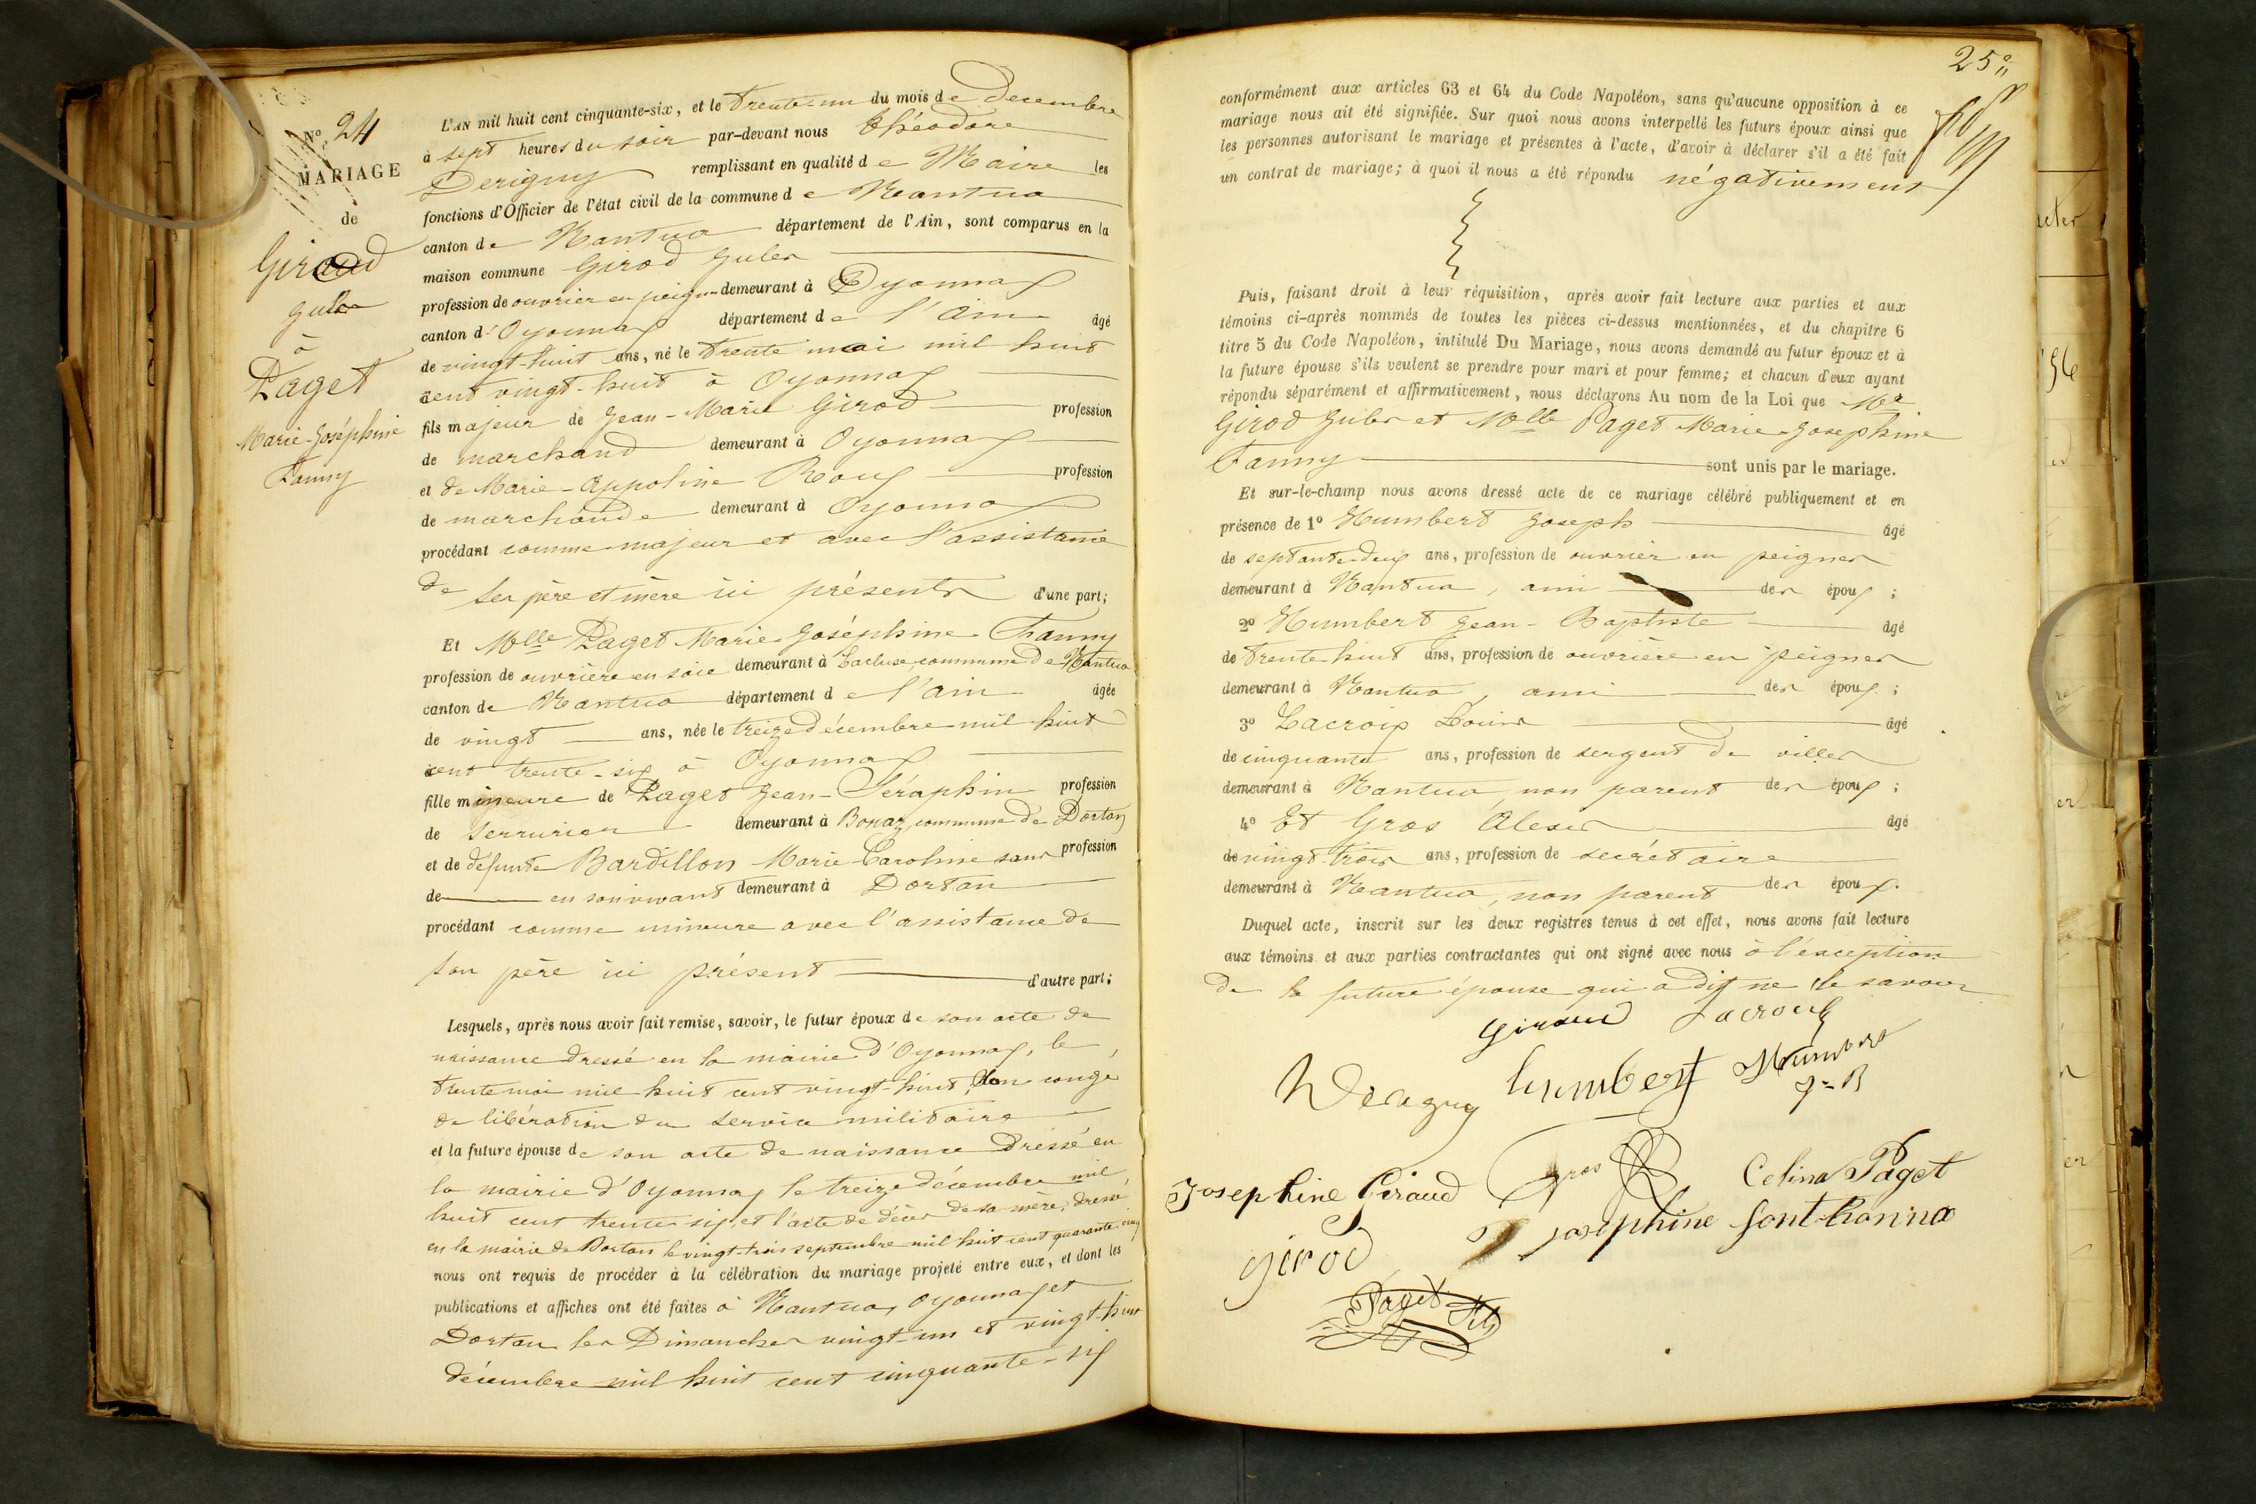 N° 24
MARIAGE
de
Giraud
Jules
à
Paget
Marie-Joséphine
Fanny
L'AN mil huit cent cinquante-six, et le trente-un du mois de Decembre
à sept heures du soir par-devant nous Théodore
Derigny remplissant en qualité de Maire les
fonctions d'Officier de l'état civil de la commune de Nantua
canton de Nantua département de l'Ain, sont comparus en la
maison commune Girod Jules
profession de ouvrier en peignes demeurant à Oyonnax
canton d'Oyonnax département de l'Ain âgé
de vingt-huit ans, né le trente mai mil huit
cent vingt-huit à Oyonnax
fils majeur de Jean-Marie Girod profession
de marchand demeurant à Oyonnax
et de Marie-Appoline Roux profession
de marchande demeurant à Oyonnax
procédant comme majeur et avec l'assistance
de ses père et mère ici présents d'une part;
Et Mlle Paget Marie-Joséphine Fanny
profession de ouvrière en soie demeurant à Lacluse, commune de Nantua
canton de Nantua département de l'Ain âgée
de vingt ans, née le treize décembre mil huit
cent trente-six à Oyonnax
fille mineure de Paget Jean-Séraphin profession
de serrurier demeurant à Bonaz, commune de Dortan
et de défunte Bardillon Marie-Caroline sans profession
de en son vivant demeurant à Dortan
procédant comme mineure avec l'assistance de
son père ici présent d'autre part;
Lesquels, après nous avoir fait remise, savoir, le futur époux de son acte de
naissance dressé en la mairie d'Oyonnax, le
trente mai mil huit cent vingt-huit, son congé
de libération du service militaire
et la future épouse de son acte de naissance dressé en
la mairie d'Oyonnax le treize décembre mil
huit cent trente six, et l'acte de décès de sa mère, dressé
en la mairie de Dortan le vingt-trois septembre mil huit cent quarante-cinq
nous ont requis de procéder à la célébration du mariage projeté entre eux, et dont les
publications et affiches ont été faites à Nantua, Oyonnax et
Dortan les Dimanches vingt-un et vingt-huit
décembre mil huit cent cinquante-six
25
conformément aux articles 63 et 64 du Code Napoléon, sans qu'aucune opposition à ce
mariage nous ait été signifiée. Sur quoi nous avons interpellé les futurs époux ainsi que
les personnes autorisant le mariage et présentes à l'acte, d'avoir à déclarer s'il a été fait
un contrat de mariage; à quoi il nous a été répondu négativement
Puis, faisant droit à leur réquisition, après avoir fait lecture aux parties et aux
témoins ci-après nommés de toutes les pièces ci-dessus mentionnées, et du chapitre 6
titre 5 du Code Napoléon, intitulé Du Mariage, nous avons demandé au futur époux et à
la future épouse s'ils veulent se prendre pour mari et pour femme; et chacun d'eux ayant
répondu séparément et affirmativement, nous déclarons Au nom de la Loi que Mr
Girod Jules et Mlle Paget Marie-Josephine
Fanny sont unis par le mariage.
Et sur-le-champ nous avons dressé acte de ce mariage célébré publiquement et en
présence de 1° Humbert Joseph âgé
de septante-deux ans, profession de ouvrier en peignes
demeurant à Nantua, ami des époux;
2° Humbert Jean-Baptiste âgé
de trente huit ans, profession de ouvrière en peignes
demeurant à Nantua, ami des époux;
3° Lacroix Louis âgé
de cinquante ans, profession de sergent de villes
demeurant à Nantua, non parent des époux;
4° Et Gros Alexis âgé
de vingt trois ans, profession de secrétaire
demeurant à Nantua, non parent des époux.
Duquel acte, inscrit sur les deux registres tenus à cet effet, nous avons fait lecture
aux témoins et aux parties contractantes qui ont signé avec nous à l'exception
de la future épouse qui a dit ne le savoir
Giraud Lacroix
Derigny humbert Humbert
J-B
Josephine Giraud Gros Celina Paget
girod josephine font-honna
Paget